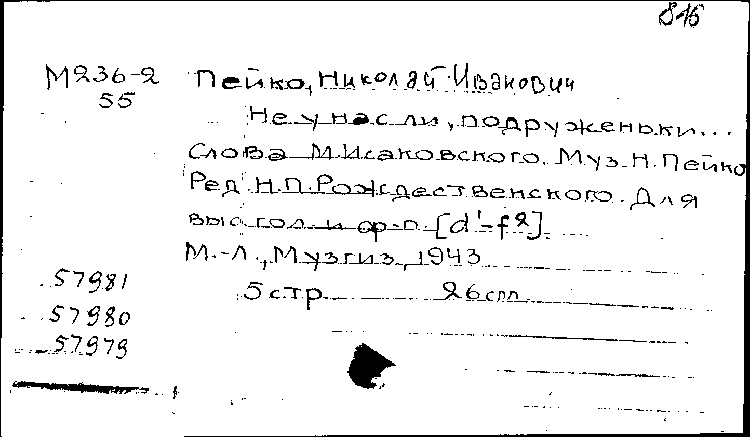 846
М236-2 Пейко, Николай Иванович
55
Не у нас ли, подруженьки...
Слова М.Исаковского. Муз.Н.Пейко
Ред. Н.П.Рождественского. Для
выс гол. и ф-п. [d¹-f²].
М.-Л., Музгиз, 1943
5 стр. 26 спл
57981
57980
57979